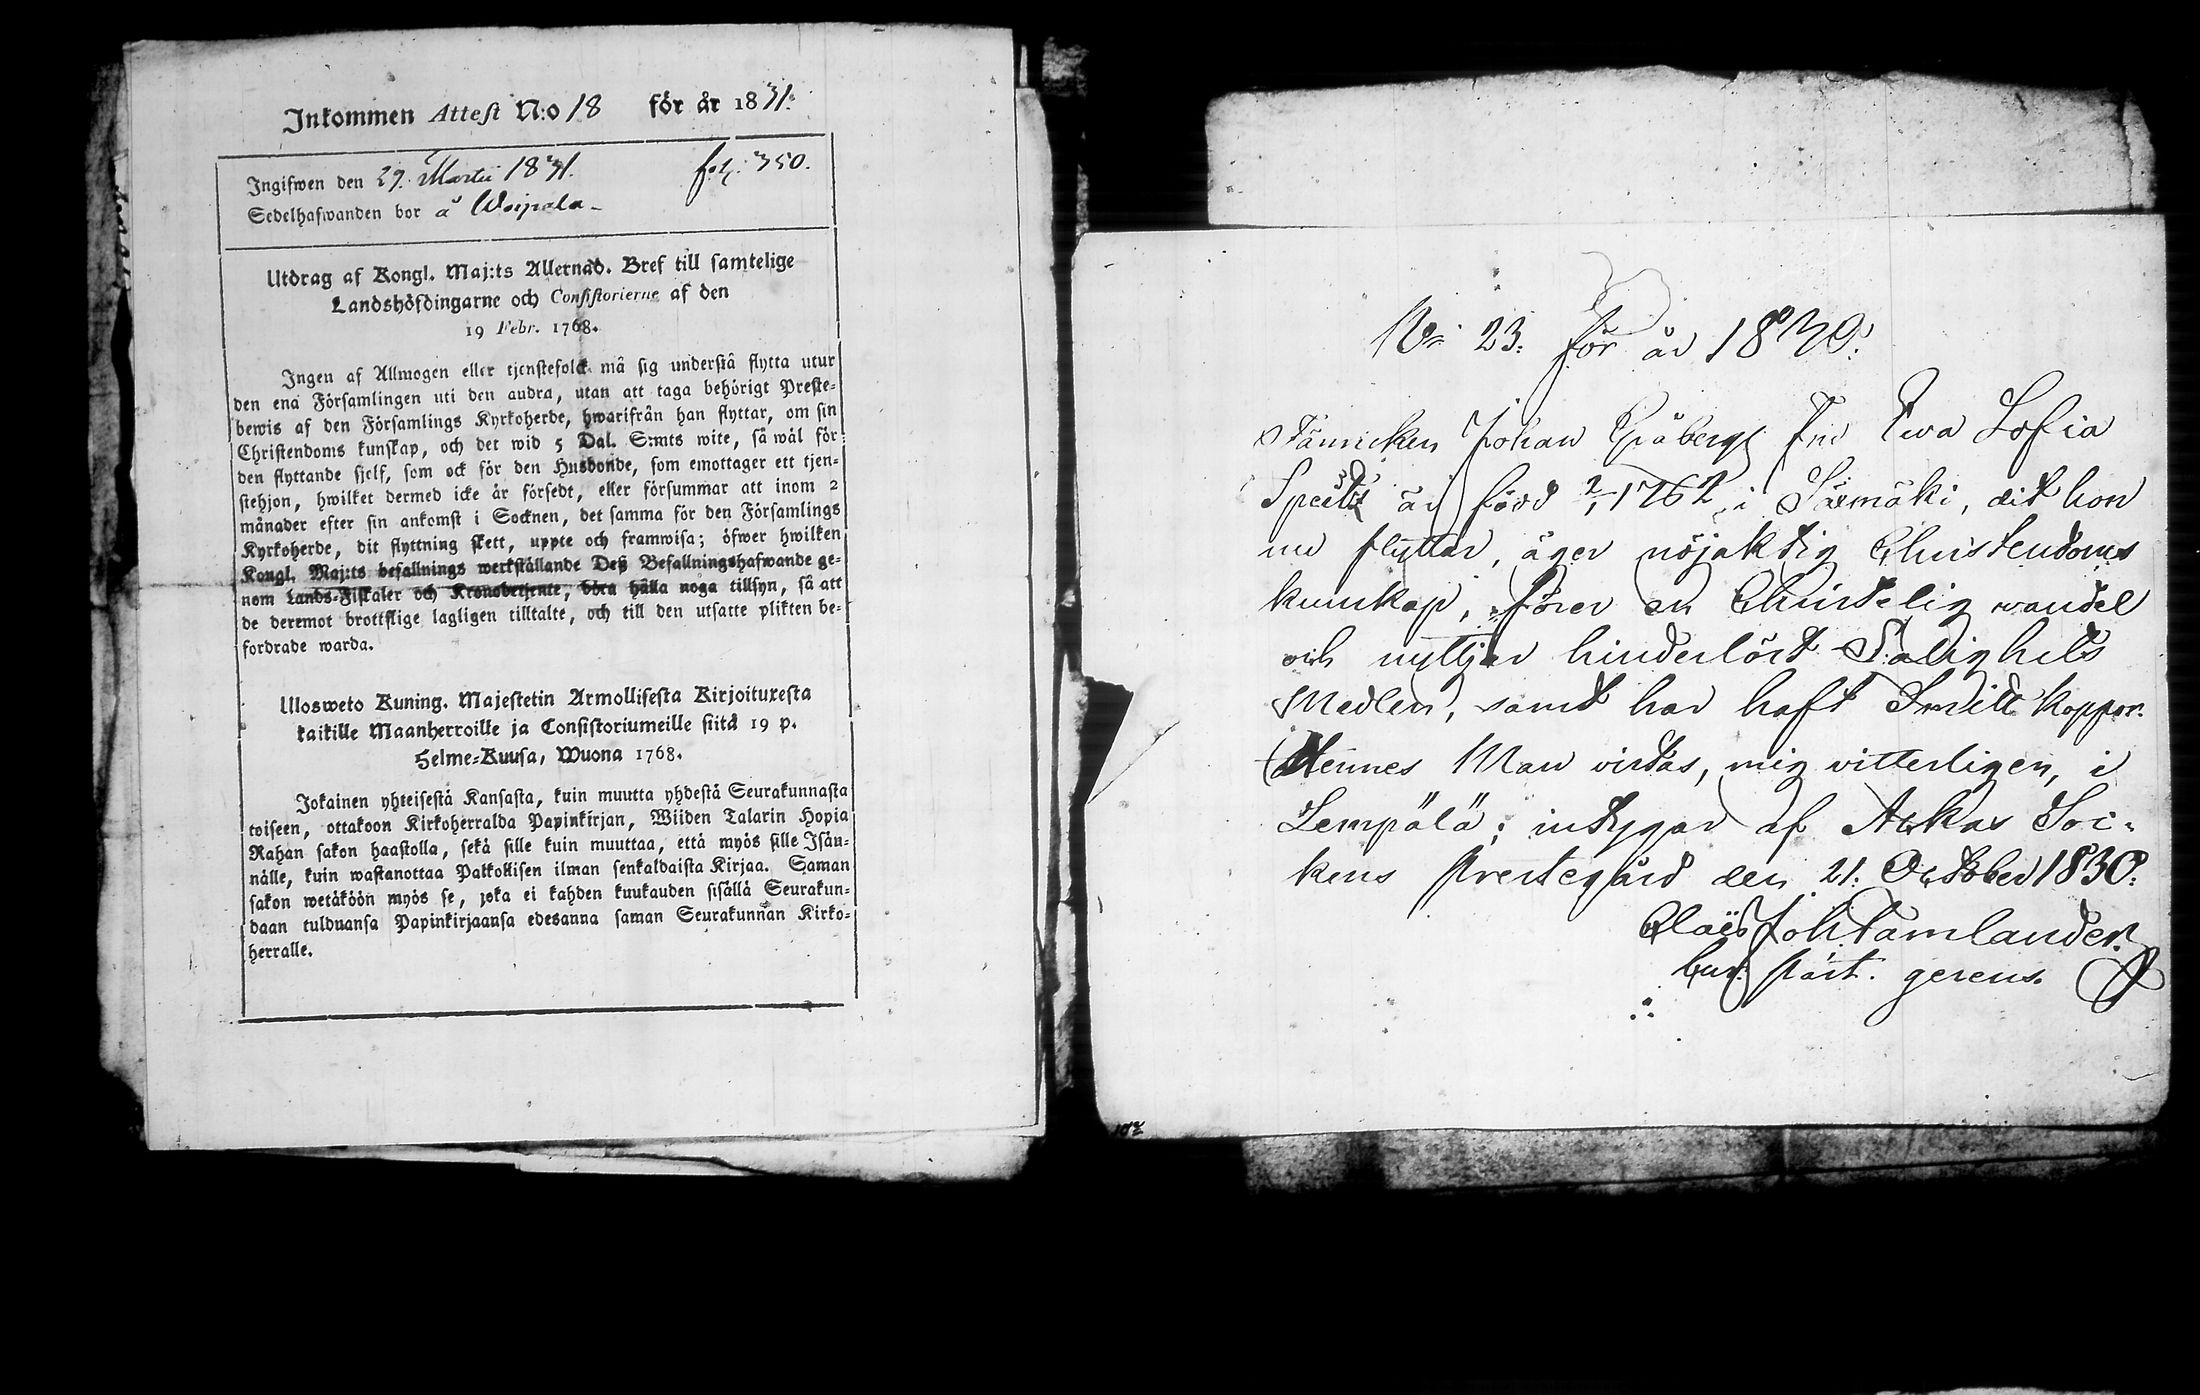 Inkommen Attest N:o 18 för år 1831.
Ingifwen den 29. Martii 1831. fol. 350.
Sedelhafwanden bor å Woipala
Utdrag af Kongl. Maj:ts Allernåd. Bref till samtelige
Landshöfdingarne och Consistorierne af den
19 Febr. 1768.
Ingen af Allmogen eller tjenstefolck må sig understå flytta utur
den ena Församlingen uti den audra, utan att taga behörigt Preste-
bewis af den Församlings Kyrkoherde, hwarifrån han flyttar, om sin
Christendoms kunskap, och det wid 5 Dal. S:mts wite, så wäl för
den flyttande sjelf, som ock för den Husbonde, som emottager ett tjen-
stehjon, hwilket dermed icke är försedt, eller försummar att inom 2
månader efter sin ankomst i Socknen, det samma för den Församlings
Kyrkoherde, dit flyttning skett, uppte och framwisa; öfwer hwilken
Kongl. Maj:ts befallnings werkställande Deß Befallningshafwande ge-
nom Lands-Fiskaler och Kronobetjente, böra hålla noga tillsyn, så att
de deremot brottslige lagligen tilltalte, och till den utsatte plikten be-
fordrade warda.
Ulosweto Kuning. Majestetin Armollisesta Kirjoituxesta
kaikille Maanherroille ja Consistoriumeille siitä 19 p.
Helme-Kuusa, Wuona 1768.
Jokainen yhteisestä Kansasta, kuin muutta yhdestä Seurakunnasta
toiseen, ottakoon Kirkoherralda Papinkirjan, Wiiden Talarin Hopia
Rahan sakon haastolla, sekä sille kuin muuttaa, että myös sille Isän-
nälle, kuin wastanottaa Palkollisen ilman senkaldaista Kirjaa. Saman
sakon wetäköön myös se, joka ei kahden kuukauden sisällä Seurakun-
daan tulduansa Papinkirjaansa edesanna saman Seurakunnan Kirko-
herralle.
No 23. för år 1830.
Johan Gråbergs Ewa Sofia
är född 1762 i Säxmäki, dit hon
nu flyttar, äger nöjaktig Christendoms
kunskap, förer en Christelig wandel
och nyttjar hinderlöst Salighets
Medlen, samt har haft Koppor.
Hennes Man vistas, mig vitterligen, i
Lempälä; intygar af Akkas Soc-
kens Prestegård den 21. October 1830.
Joh. Tamlander.
past. gerens.